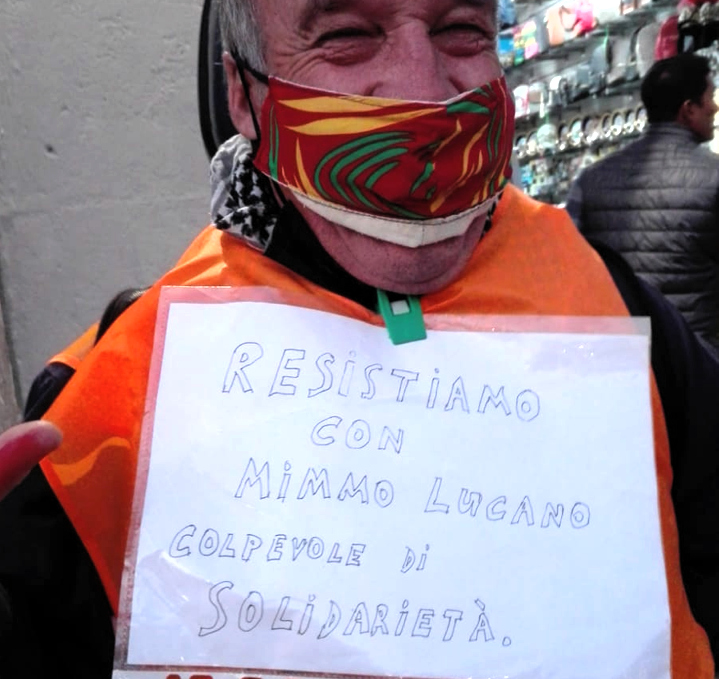 RESiSTiAMO
CON
MiMMO LUCANO
COLPEVOLE Di
SOLiDARiETÀ.